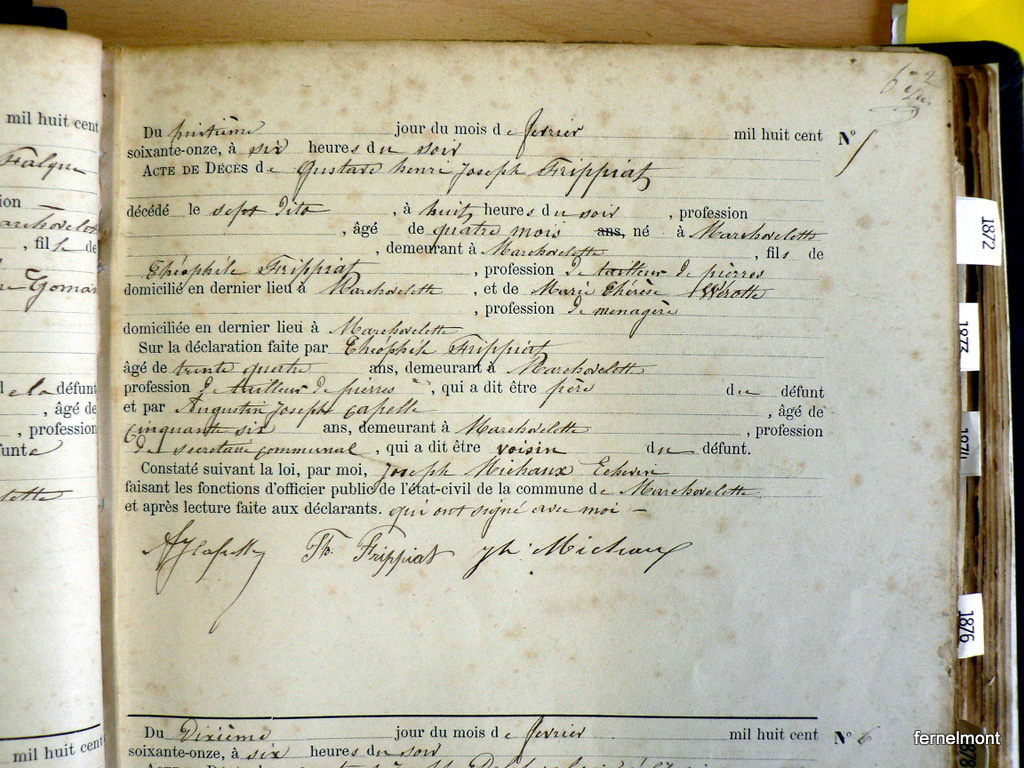 mil huit cent
Falque
, fils de
Goma
défunt
, âgé de
, profession
mil huit cent
Du huitième jour du mois de fevrier mil huit cent N° 5
soixante-onze, à six heures du soir
ACTE DE DÉCÈS de Gustave henri Joseph Frippiat
décédé le sept dito , à huit heures du soir , profession
, âgé de quatre mois ans, né à Marchovelette
, demeurant à Marchovelette , fils de
Théophile Frippiat , profession de tailleur de pierres
domicilié en dernier lieu à Marchovelette , et de Marie Thérèse Wérotte
, profession de menagère
domiciliée en dernier lieu à Marchovelette
Sur la déclaration faite par Théophile Frippiat
âgé de trente quatre ans, demeurant à Marchovelette
profession de tailleur de pierres , qui a dit être père du défunt
et par Augustin Joseph Capelle , âgé de
cinquante six ans, demeurant à Marchovelette , profession
de secretaire communal , qui a dit être voisin du défunt.
Constaté suivant la loi, par moi, Joseph Michaux Echevin
faisant les fonctions d'officier public de l'état-civil de la commune de Marchovelette
et après lecture faite aux déclarants. qui ont signé avec moi –
AJCapelle Th. Frippiat Jh. Michaux
Du Dixième jour du mois de fevrier mil huit cent N° 6
soixante-onze, à six heures du soir
1872
1873
1874
1876
1878
fernelmont